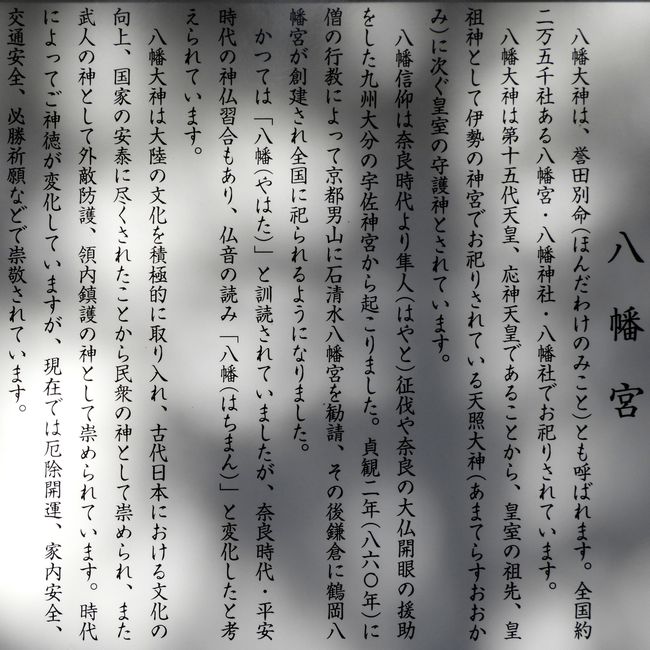 八幡宮
八幡大神は、誉田別命(ほんだわけのみこと)とも呼ばれます。全国約
二万五千社ある八幡宮・八幡神社・八幡社でお祀りされています。
八幡大神は第十五代天皇、応神天皇であることから、皇室の祖先、皇
祖神として伊勢の神宮でお祀りされている天照大神(あまてらすおおか
み)に次ぐ皇室の守護神とされています。
八幡信仰は奈良時代より隼人(はやと)征伐や奈良の大仏開眼の援助
をした九州大分の宇佐神宮から起こりました。貞観二年(八六〇年)に
僧の行教によって京都男山に石清水八幡宮を勧請、その後鎌倉に鶴岡八
幡宮が創建され全国に祀られるようになりました。
かつては「八幡(やはた)」と訓読されていましたが、奈良時代・平安
時代の神仏習合もあり、仏音の読み「八幡(はちまん)」と変化したと考
えられています。
八幡大神は大陸の文化を積極的に取り入れ、古代日本における文化の
向上、国家の安泰に尽くされたことから民衆の神として崇められ、また
武人の神として外敵防護、領内鎮護の神として崇められています。時代
によってご神徳が変化していますが、現在では厄除開運、家内安全、
交通安全、必勝祈願などで崇敬されています。